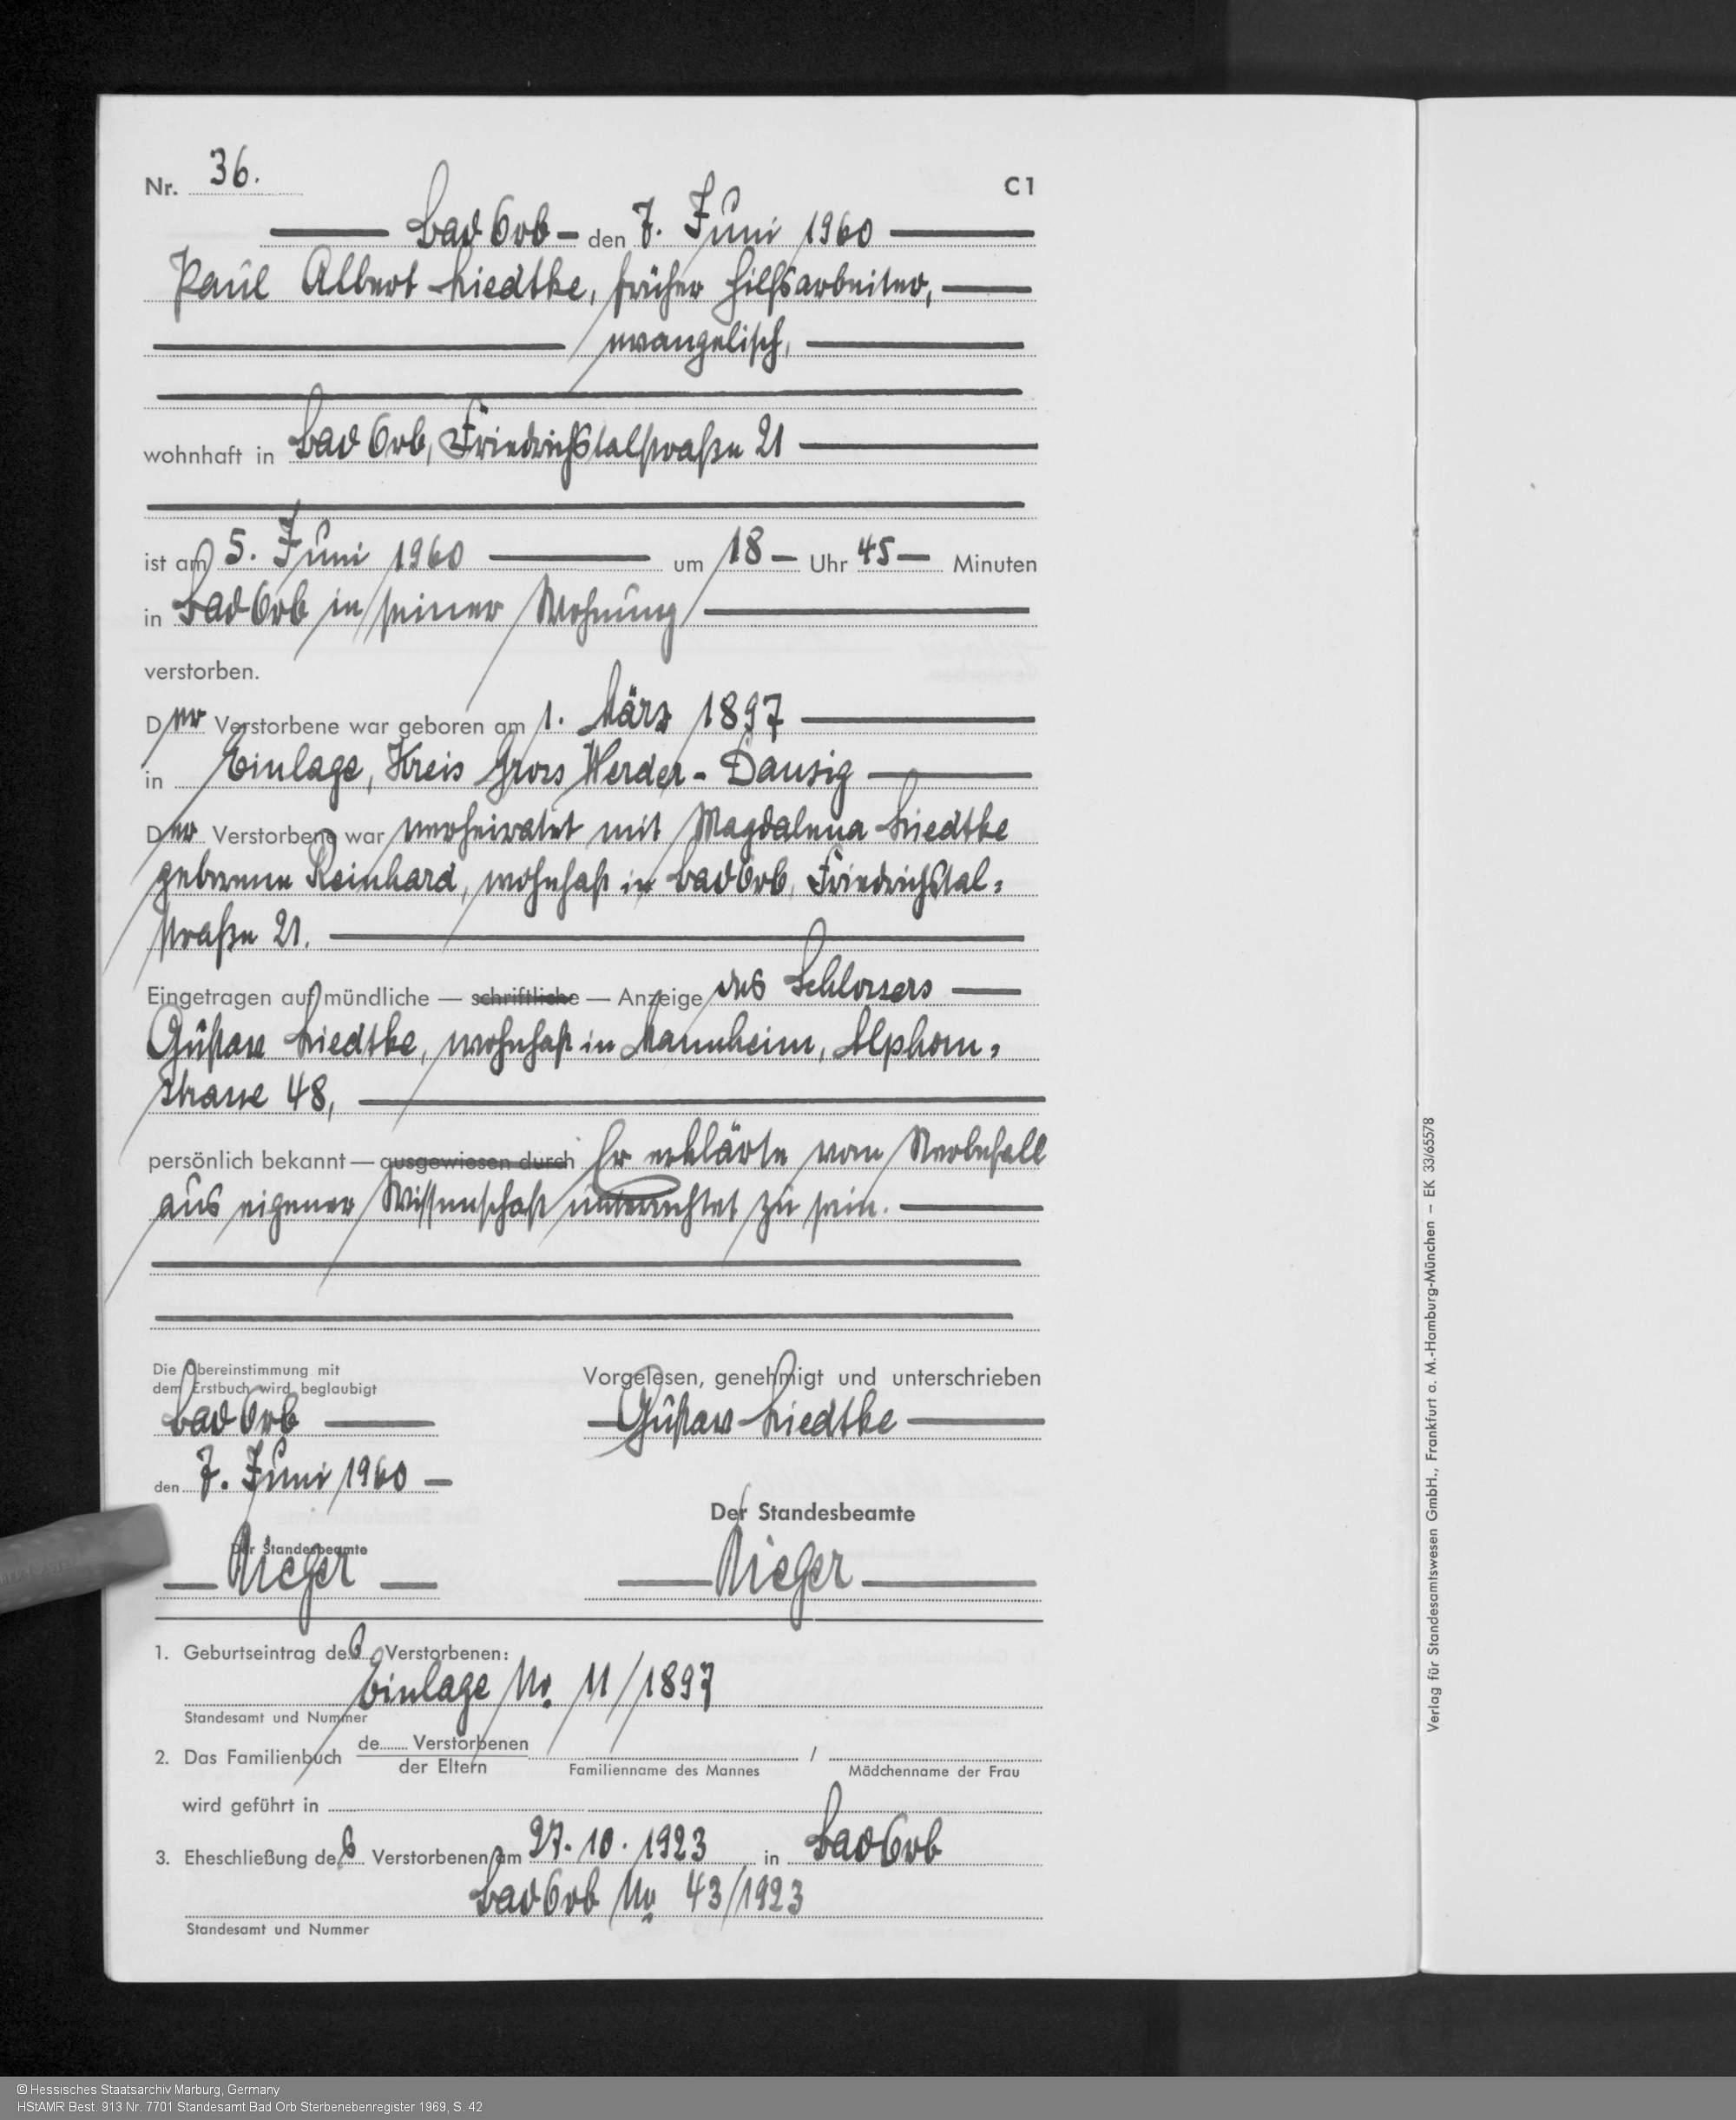 Nr. 36. C1
Bad Orb – den 7. Juni 1960
Paul Albert Liedtke, früher Hilfsarbeiter,
evangelisch,
wohnhaft in Bad Orb, Friedrichstalstraße 21
ist am 5. Juni 1960 um 18 – Uhr 45 – Minuten
in Bad Orb in seiner Wohnung
verstorben.
Der Verstorbene war geboren am 1. März 1897
in Einlage, Kreis Gross Werder - Danzig
Der Verstorbene war verheiratet mit Magdalena Liedtke
geborene Reinhard, wohnhaft in Bad Orb, Friedrichstal=
straße 21.
Eingetragen auf mündliche — schriftliche — Anzeige des Schlossers
Gustav Liedtke, wohnhaft in Mannheim, Alphorn=
strasse 48,
persönlich bekannt — ausgewiesen durch Er erklärte vom Sterbefall
aus eigener Wissenschaft unterrichtet zu sein.
Die Übereinstimmung mit
dem Erstbuch wird beglaubigt
Bad Orb
den 7. Juni 1960 –
Der Standesbeamte
Rieger
Vorgelesen, genehmigt und unterschrieben
Gustav Liedtke
Der Standesbeamte
Rieger
1. Geburtseintrag des Verstorbenen:
Einlage No. 11/1897
Standesamt und Nummer
2. Das Familienbuch de...... Verstorbenen
der Eltern
/
Familienname des Mannes Mädchenname der Frau
wird geführt in
3. Eheschließung des Verstorbenen am 27. 10. 1923 in Bad Orb
Bad Orb No. 43/1923
Standesamt und Nummer
Verlag für Standesamtswesen GmbH., Frankfurt a. M.-Hamburg-München – EK 33/65578
© Hessisches Staatsarchiv Marburg, Germany
HStAMR Best. 913 Nr. 7701 Standesamt Bad Orb Sterbenebenregister 1969, S. 42